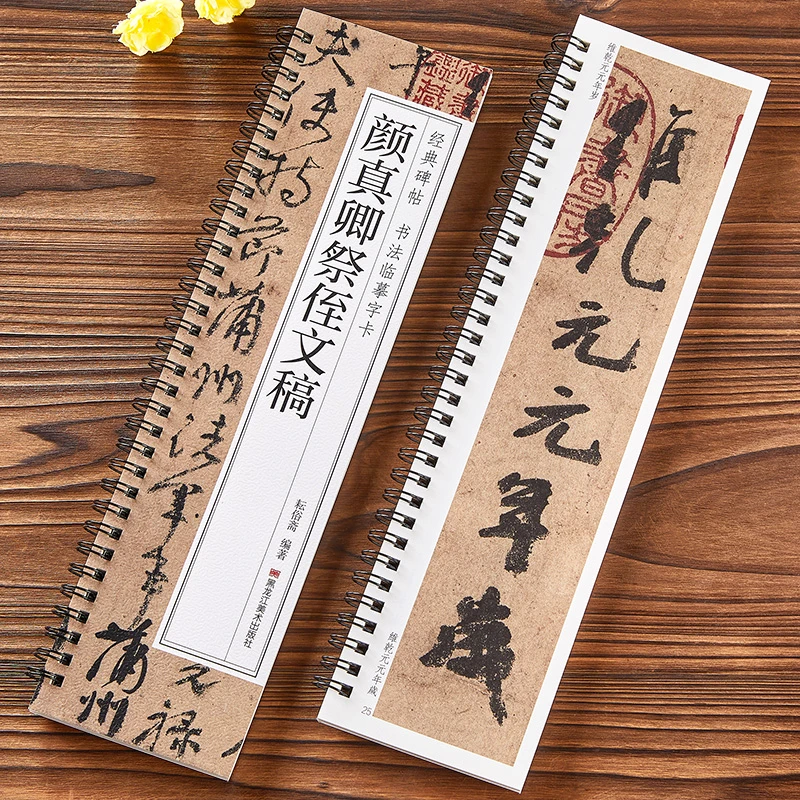 经典碑帖 书法临摹字卡
颜真卿祭侄文稿
耘俗斋 编著
黑龙江美术出版社
夫使持節蒲州諸軍事蒲州
维乾元元年岁
維乾元元年歲
维乾元元年歲
25